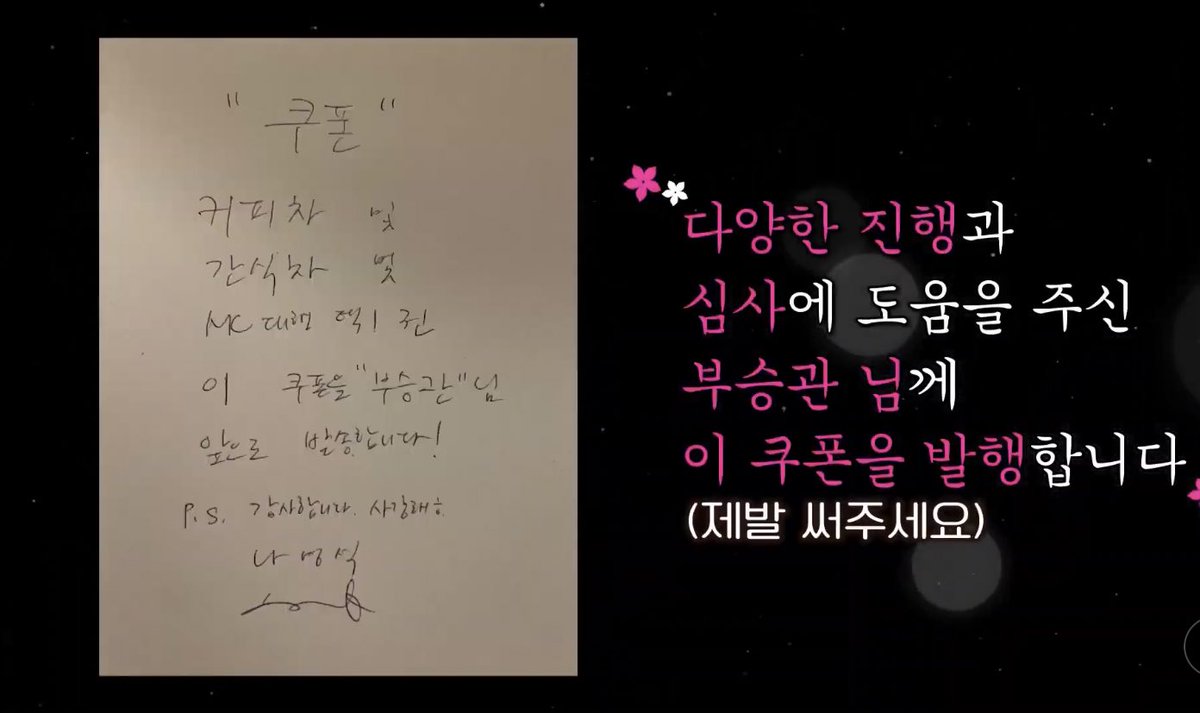 " 쿠폰 "
커피차 및
간식차 및
MC 대행 택 1 권
이 쿠폰을 "부승관"님
앞으로 발송합니다!
P.S. 감사합니다. 사랑해요
나영석
다양한 진행과
심사에 도움을 주신
부승관 님께
이 쿠폰을 발행합니다
(제발 써주세요)